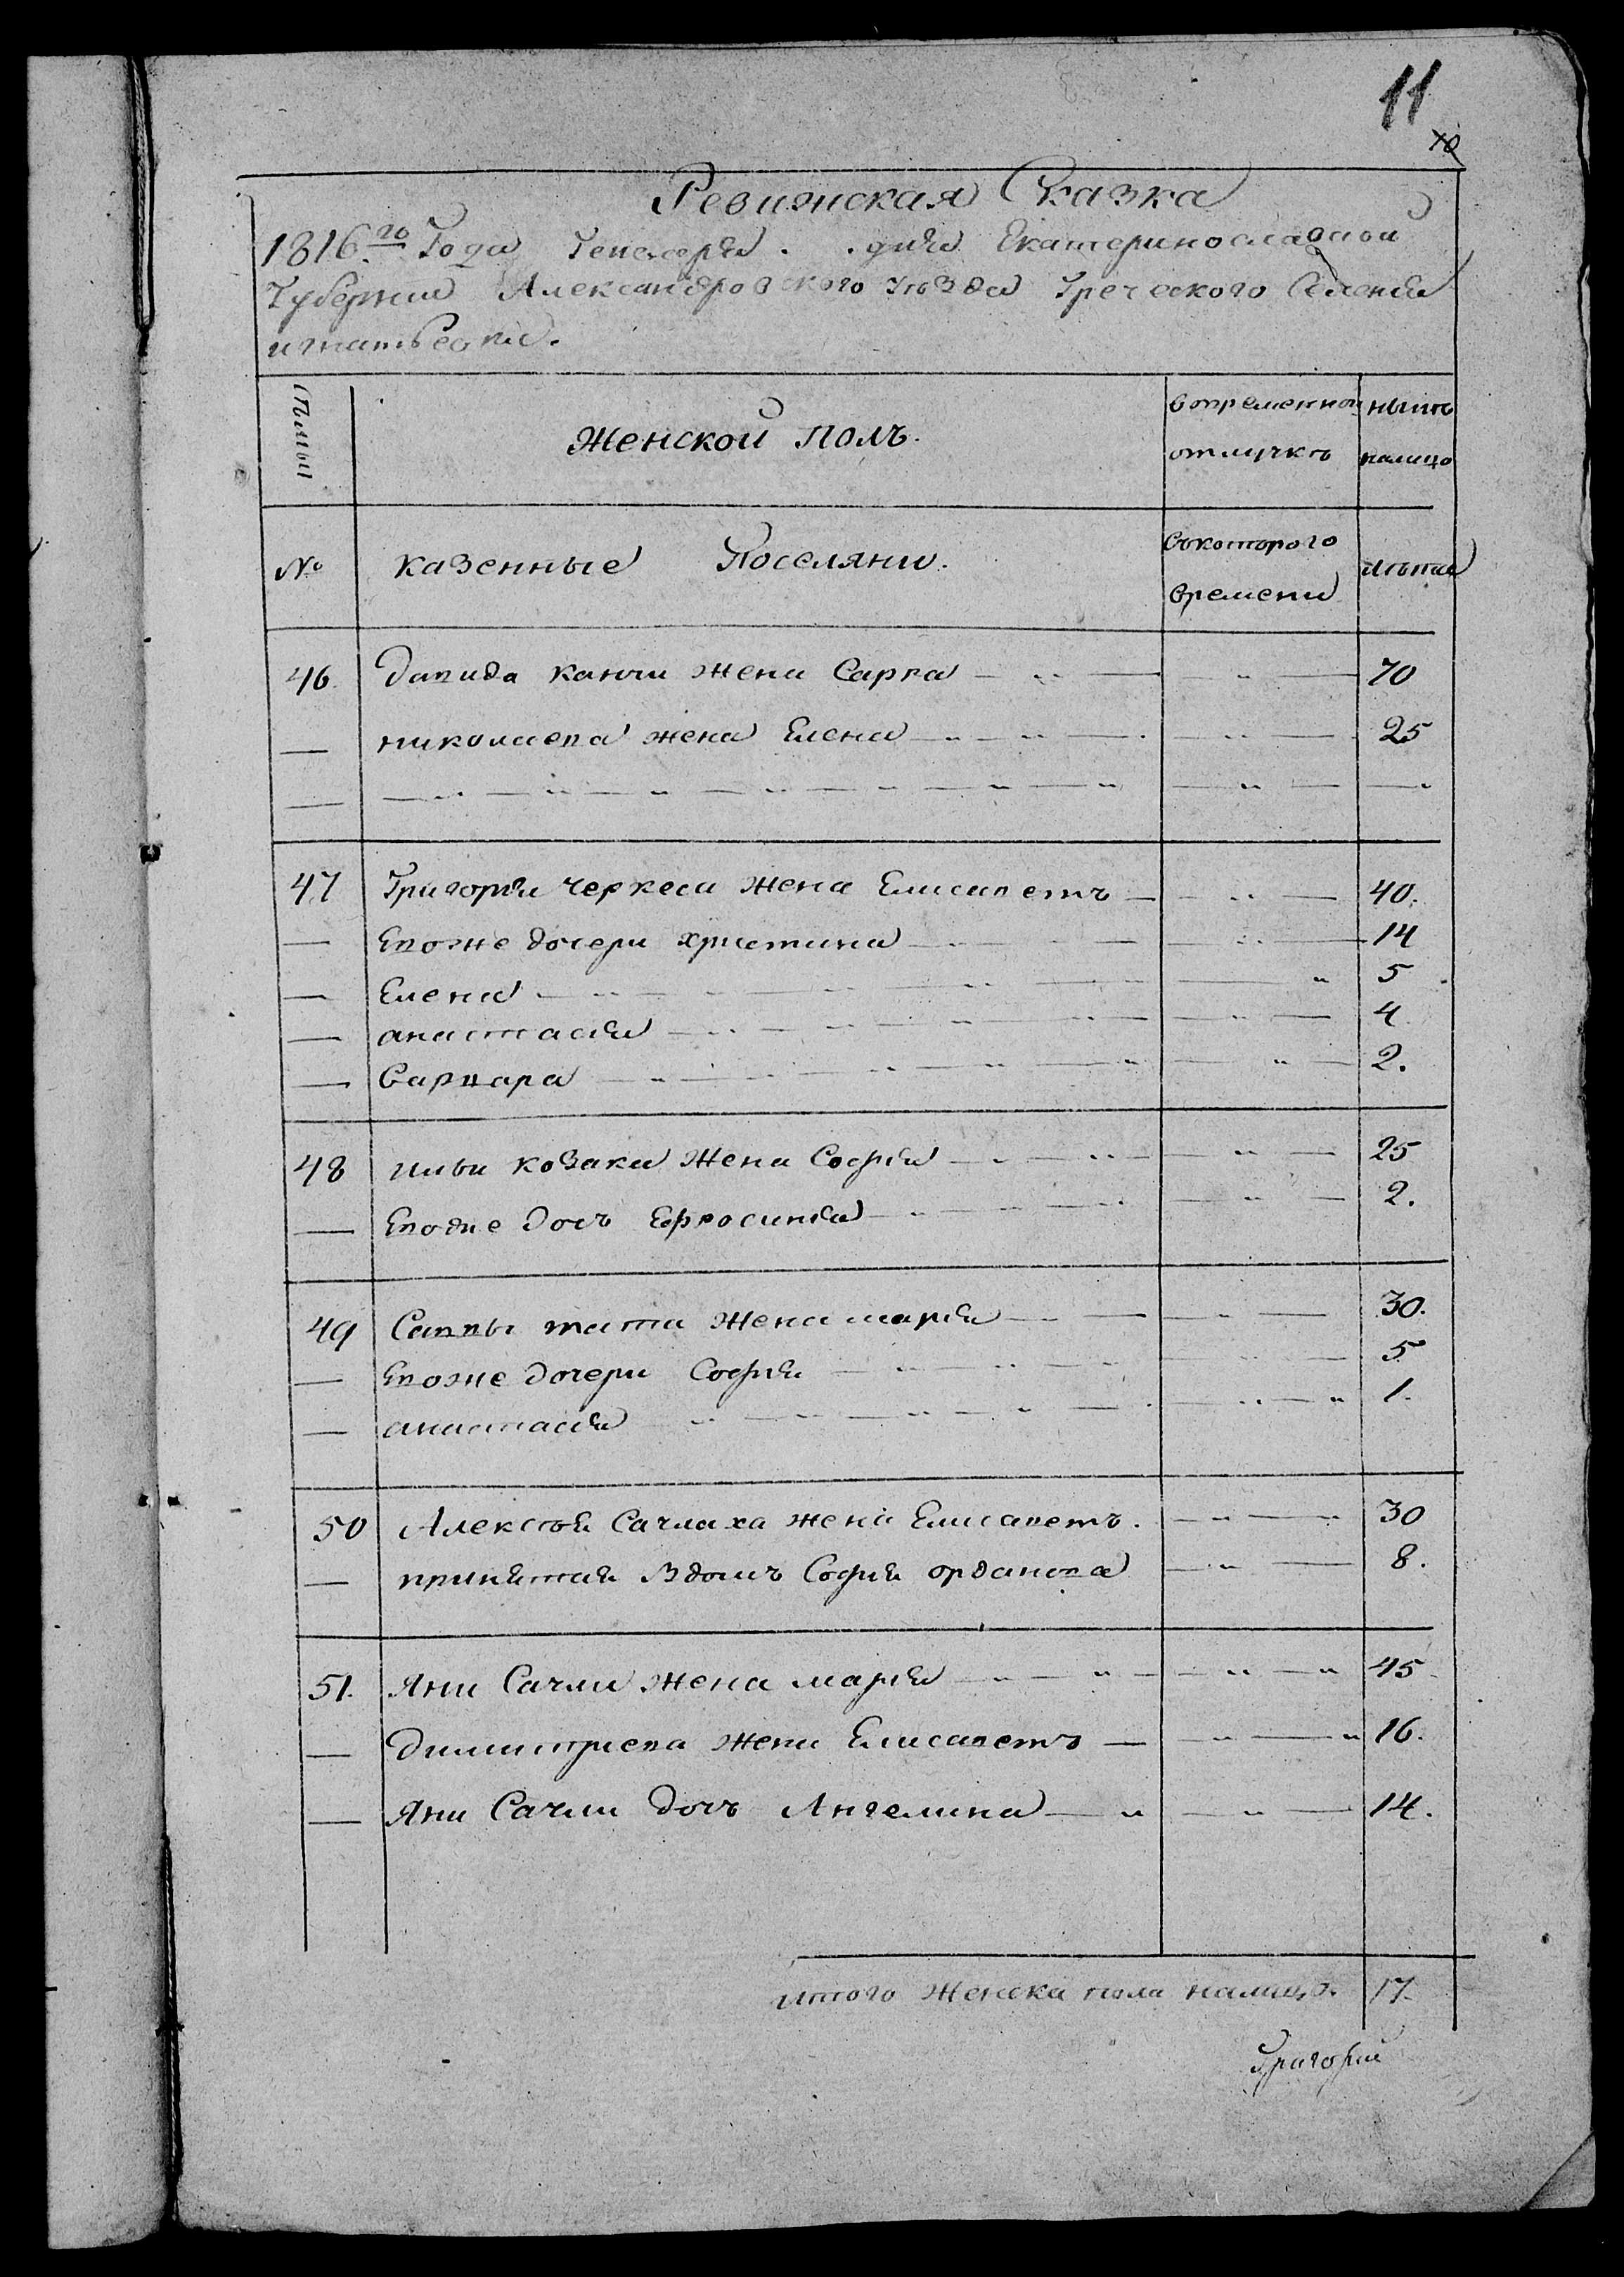 11
10
Ревижская Сказка
1816.го Года Генваря . . дня Екатеринославской
Губернии Александровского уѣзда Греческого Селенія
игнатьевки.
Женской полъ.
вовременной отлучкѣ
нынѣ налицо
№ казенные Поселяни.
Съкоторого времени
лѣта
46. давида канчи жена Сарра 70
— николаева жена Елена 25
47 Григорія черкеса жена Елисаветъ 40.
— Евоже дочери христина 14
— Елена 5
— анастасія 4
— варвара 2.
48 ильи козака жена Софія 25
— Евоже дочь Ефросинія 2.
49 Саввы тата жена марія 30.
— Евоже дочери Софія 5
— анастасія 1.
50 Алексѣя Сачлаха жена Елисаветъ. 30
— принятая вдомъ Софія орданова 8.
51. Яни Сачли жена марія 45
— димитриева жена Елисаветъ 16.
— Яни Сачли дочь Ангелина 14.
итого женска пола налицо. 17.
Григорій